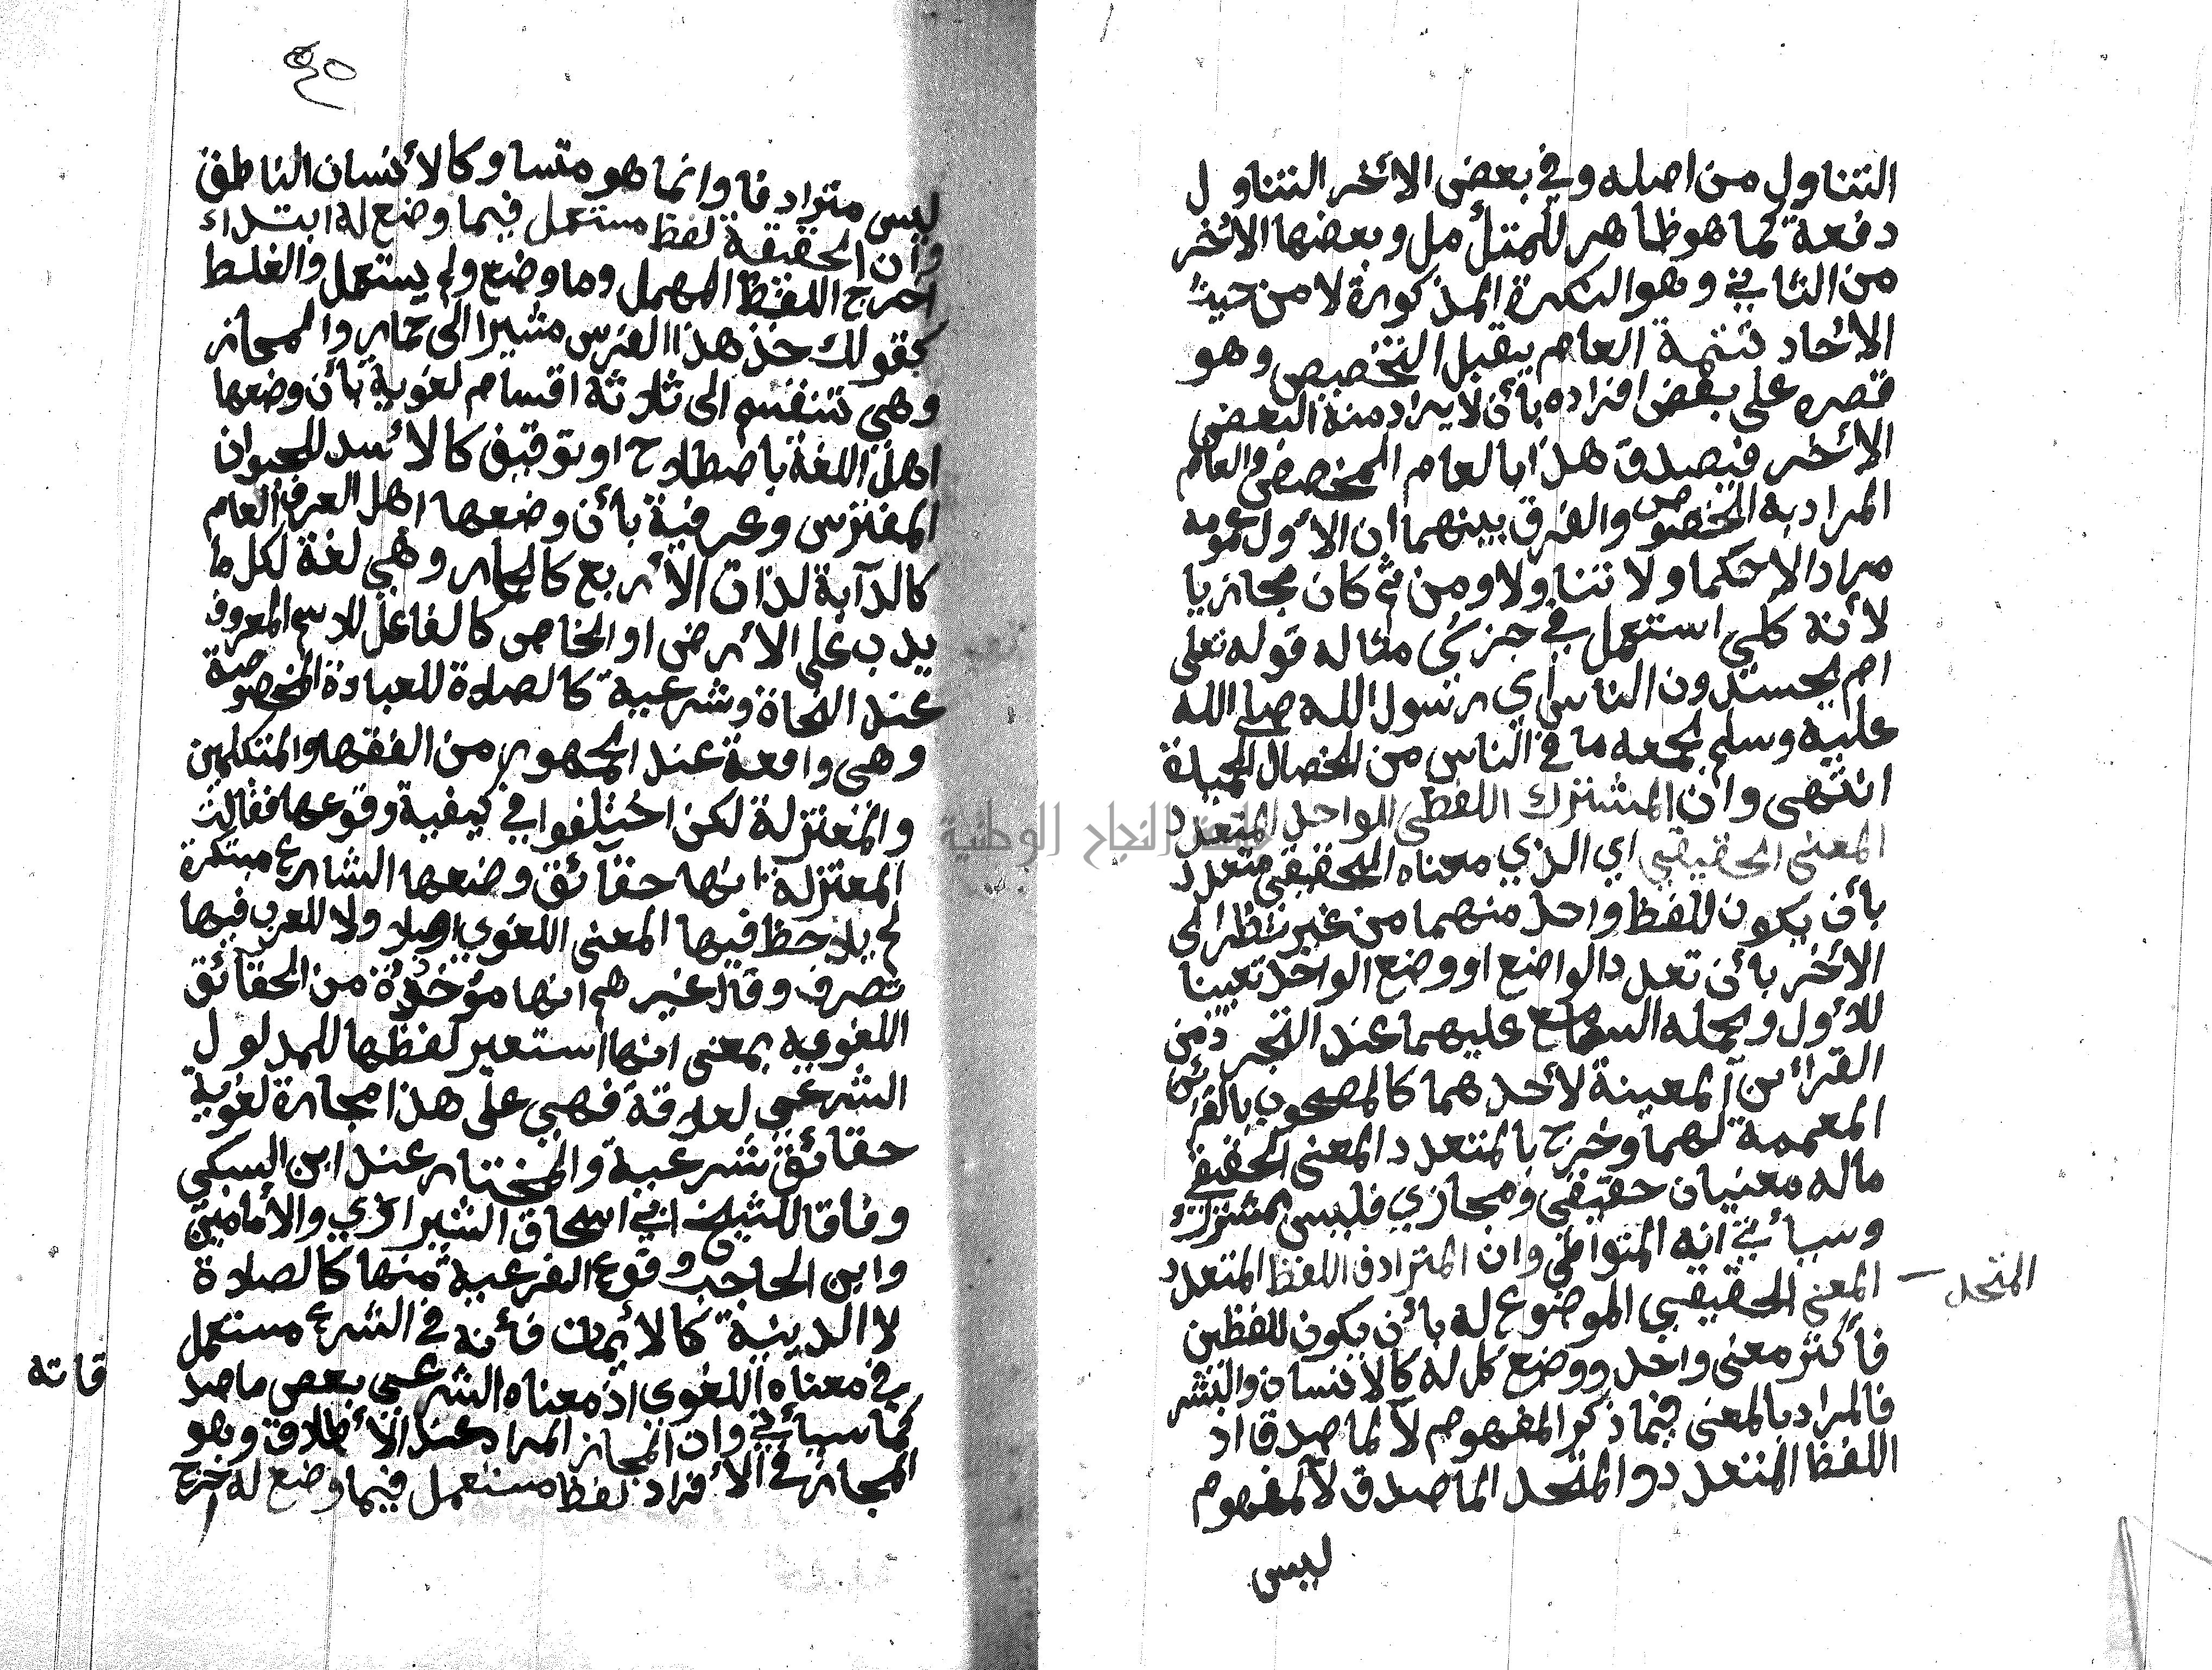 التناول من اصله وفي بعض الأخر التناول
دفعة كما هو ظاهر للمتأمل وبعضها الأخر
من الثاني وهو النكرة المذكورة لا من حيث
الأحاد تتمة العام يقبل التخصيص وهو
قصره على بعض افراده بأن لا يراد منه البعض
الأخر فيصدق هذا بالعام المخصوص والعام
المراد به الخصوص والفرق بينهما ان الأول عمومه
مراد الا حكما ولا تناولا ومن ثم كان مجازيا
لأنه كلي استعمل في جزئي مثاله قوله تعلى
ام يحسدون الناس أي رسول الله صلى الله
عليه وسلم لجمعه ما في الناس من الخصال الجميلة
انتهى وان المشترك اللفظي الواحد المتعدد
المعنى الحقيقي اي الذي معناه الحقيقي متعدد
بأن يكون للفظ واحد منهما من غير نظر الى
الأخر بأن تعدد الواضع او وضع الواحد تعيينا
للأول ويحمله السامع عليهما عند التجرد من
القرائن المعينة لأحدهما كالمصحوب بالقرائن
المعممة لهما وخرج بالمتعدد المعنى الحقيقي
ماله معنيان حقيقي ومجازي فليس بمشترك
وسيأتي انه المتواطي وان المترادف اللفظ المتعدد
المتحد
المعنى الحقيقي الموضوع له بأن يكون للفظين
فأكثر معنى واحد ووضع كل له كالأنسان والبشر
فالمراد بالمعنى فيما ذكر المفهوم لا لما صدق اذ
اللفظ المتعدد والمتحد الما صدق لا المفهوم
ليس
ليس مترادفا وانما هو متساو كالأنسان الناطق
وان الحقيقة لفظ مستعمل فيما وضع له ابتداء
اخرج اللفظ المهمل وما وضع ولم يستعمل والغلط
كقولك خذ هذا الفرس مشيرا الى حمار والمجاز
وهي تنقسم الى ثلاثة اقسام لغوية بأن وضعها
اهل اللغة باصطلاح او توقيف كالأسد للحيوان
المفترس وعرفية بأن وضعها اهل العرف العام
كالدآبة لذات الأربع كالحمار وهي لغة لكل ما
يدب على الأرض او الخاص كالفاعل للاسم المعروف
عند النحاة وشرعية كالصلاة للعبادة المخصوصة
وهي واقعة عند الجمهور من الفقها والمتكلمين
والمعتزلة لكن اختلفوا في كيفية وقوعها فقالت
المعتزلة انها حقآئق وضعها الشارع مبتكرة
لم يلاحظ فيها المعنى اللغوي اصلا ولا للعرب فيها
تصرف وقال غيرهم انها مؤخذة من الحقآئق
اللغوية بمعنى انها استعير لفظها للمدلول
الشرعي لعلاقة فهي على هذا مجازة لغوية
حقائق شرعية والمختار عند ابن السبكي
وفاقا للشيخ ابي اسحاق الشيرازي والأمامين
وابن الحاجب وقوع الفرعية منها كالصلاة
لا الدينية كالأيمان فأنه في الشرع مستعمل
في معناه اللغوى اذ معناه الشرعي بعض ما صد
قاته
كما سيأتي وان المجاز المراد عند الأطلاق وهو
المجاز في الأفراد لفظ مستعمل فيما وضع له خرج